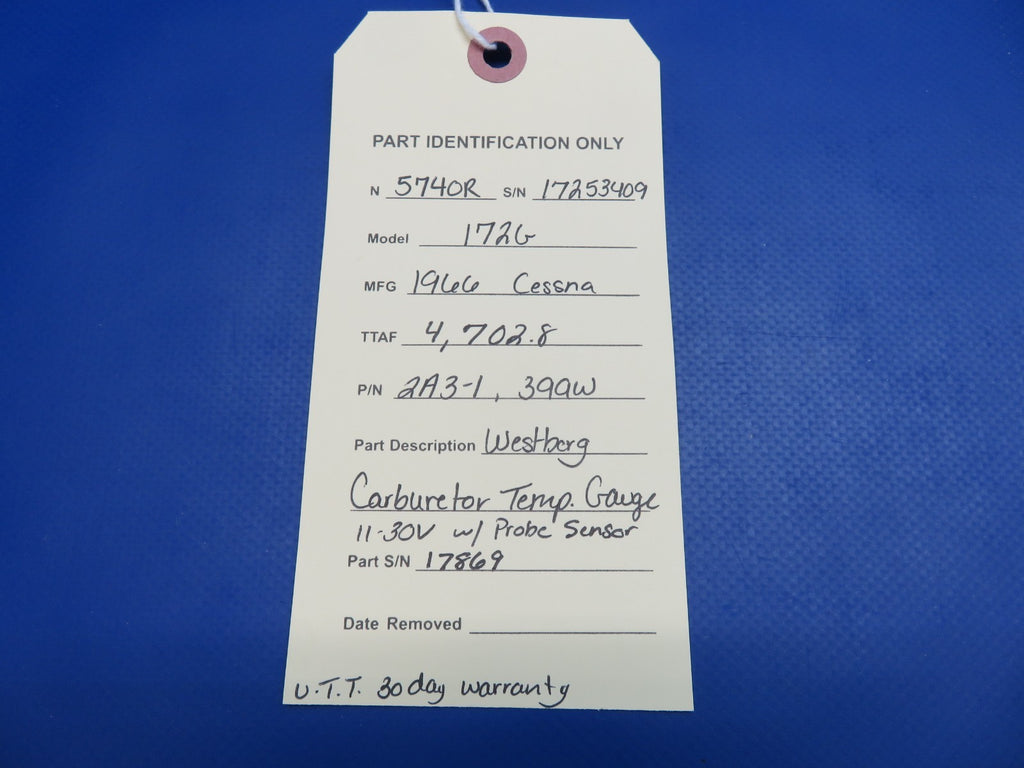 PART IDENTIFICATION ONLY
N 5740R S/N 17253409
Model 172G
MFG 1966 Cessna
TTAF 4,702.8
P/N 2A3-1, 399W
Part Description Westberg
Carburetor Temp. Gauge
11-30V w/ Probe Sensor
Part S/N 17869
Date Removed
U.T.T. 30 day warranty